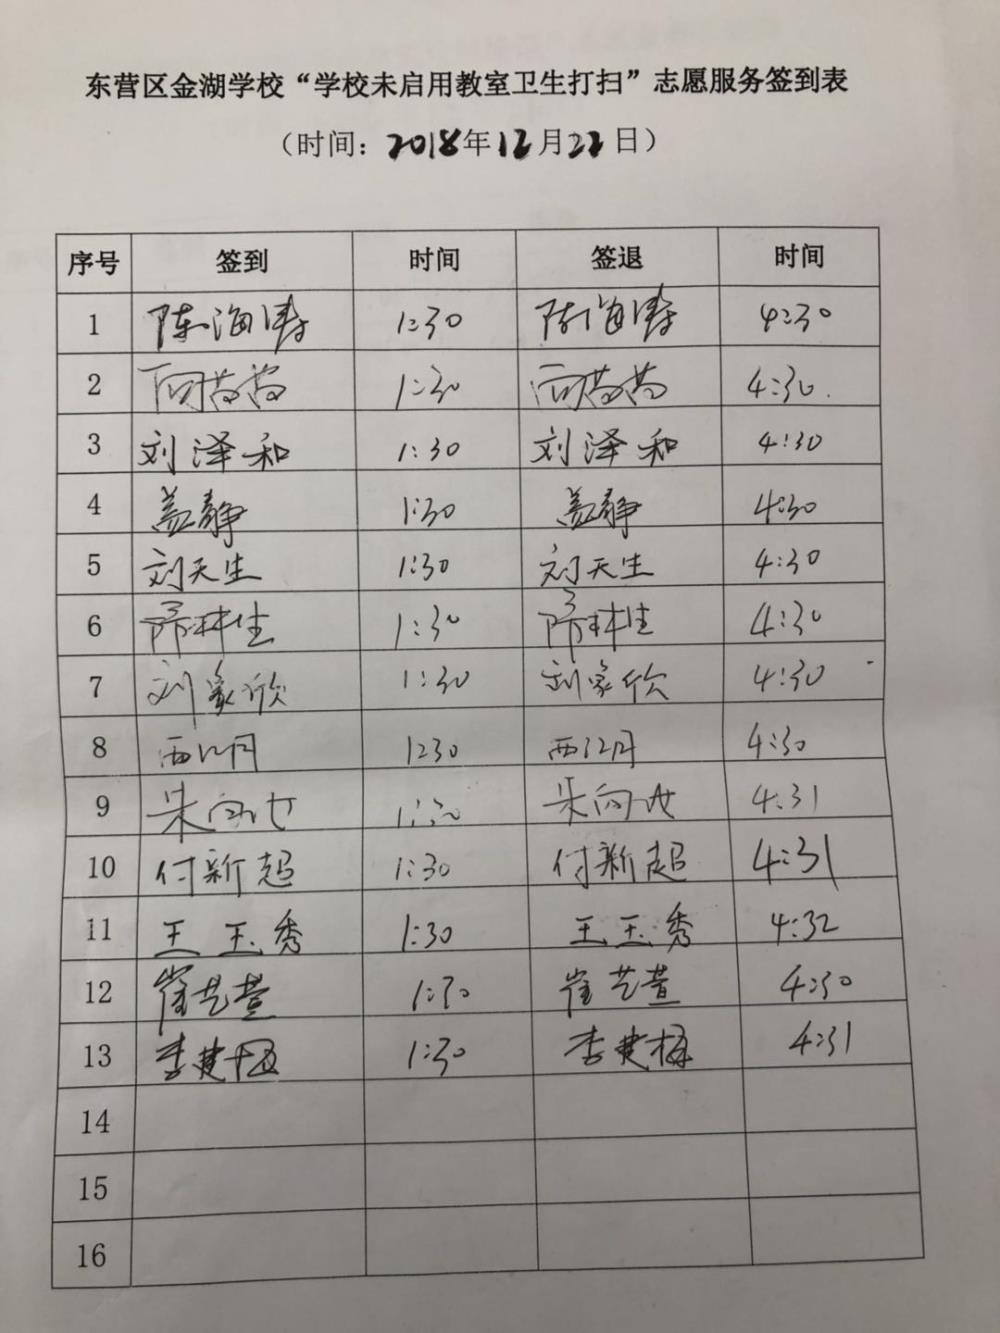 东营区金湖学校“学校未启用教室卫生打扫”志愿服务签到表
（时间：2018年12月22日）
序号 签到 时间 签退 时间
1 陈海涛 1:30 陈海涛 4:30
2 1:30 4:30
3 刘泽和 1:30 刘泽和 4:30
4 盖静 1:30 盖静 4:30
5 刘天生 1:30 刘天生 4:30
6 1:30 4:30
7 刘家欣 1:30 刘家欣 4:30
8 1:30 4:30
9 1:30 4:31
10 付新超 1:30 付新超 4:31
11 王玉秀 1:30 王玉秀 4:32
12 崔艺萱 1:30 崔艺萱 4:30
13 李建梅 1:30 李建梅 4:31
14
15
16